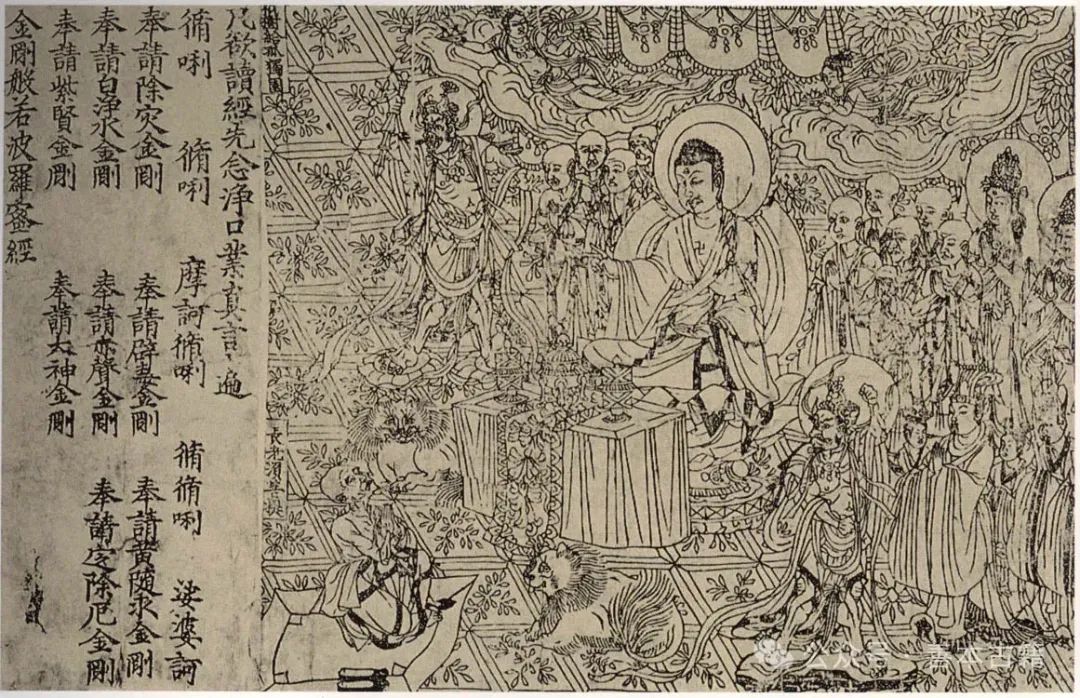 祇樹給孤獨園
長老須菩提
凡欲讀經先念淨口業真言一遍
脩唎 脩唎 摩訶脩唎 脩脩唎 娑婆訶
奉請除灾金剛 奉請辟毒金剛 奉請黃隨求金剛
奉請白淨水金剛 奉請赤聲金剛 奉請定除厄金剛
奉請紫賢金剛 奉請大神金剛
金剛般若波羅蜜經
公众号 · 善本古籍